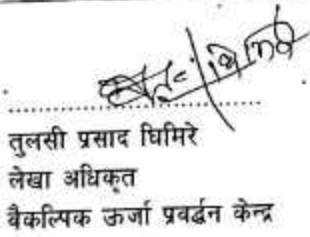 तुलसी प्रसाद घिमिरे
लेखा अधिकृत
वैकल्पिक ऊर्जा प्रवर्द्धन केन्द्र